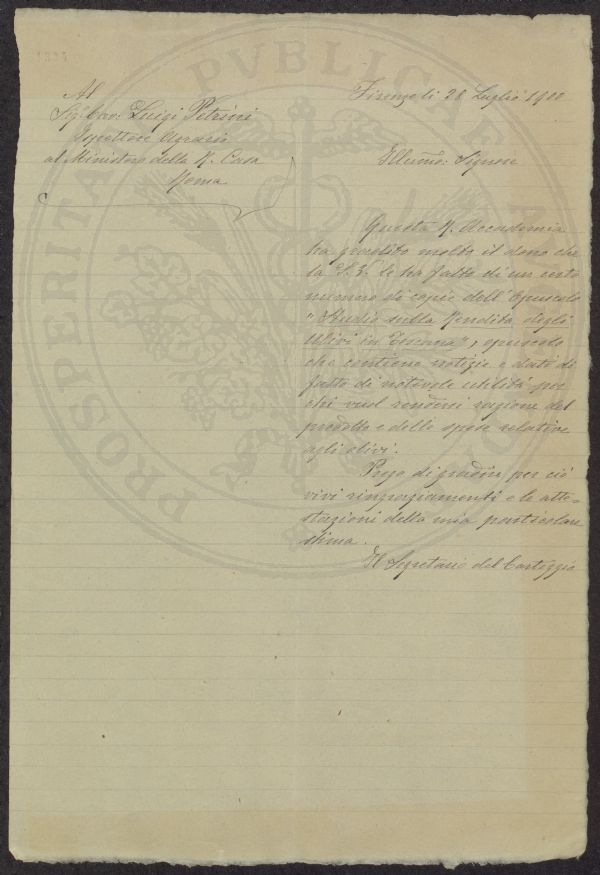 Al
Sig. Cav. Luigi Petrini
Ispettore Agrario
al Ministero della R. Casa
Roma
Firenze li 28 Luglio 1900
Illmo: Signore
Questa R. Accademia
ha gradito molto il dono che
la S. V. le ha fatto di un certo
numero di copie dell'Opuscolo
"Studio sulla Rendita degli
Ulivi in Toscana", opuscolo
che contiene notizie e dati di
fatto di notevole utilità per
chi vuol rendersi ragione del
prodotto e delle spese relative
agli olivi.
Prego di gradire per ciò
vivi ringraziamenti e le atte-
stazioni della mia particolare
stima.
Il Segretario del Carteggio
PROSPERITATI PVBLICAE